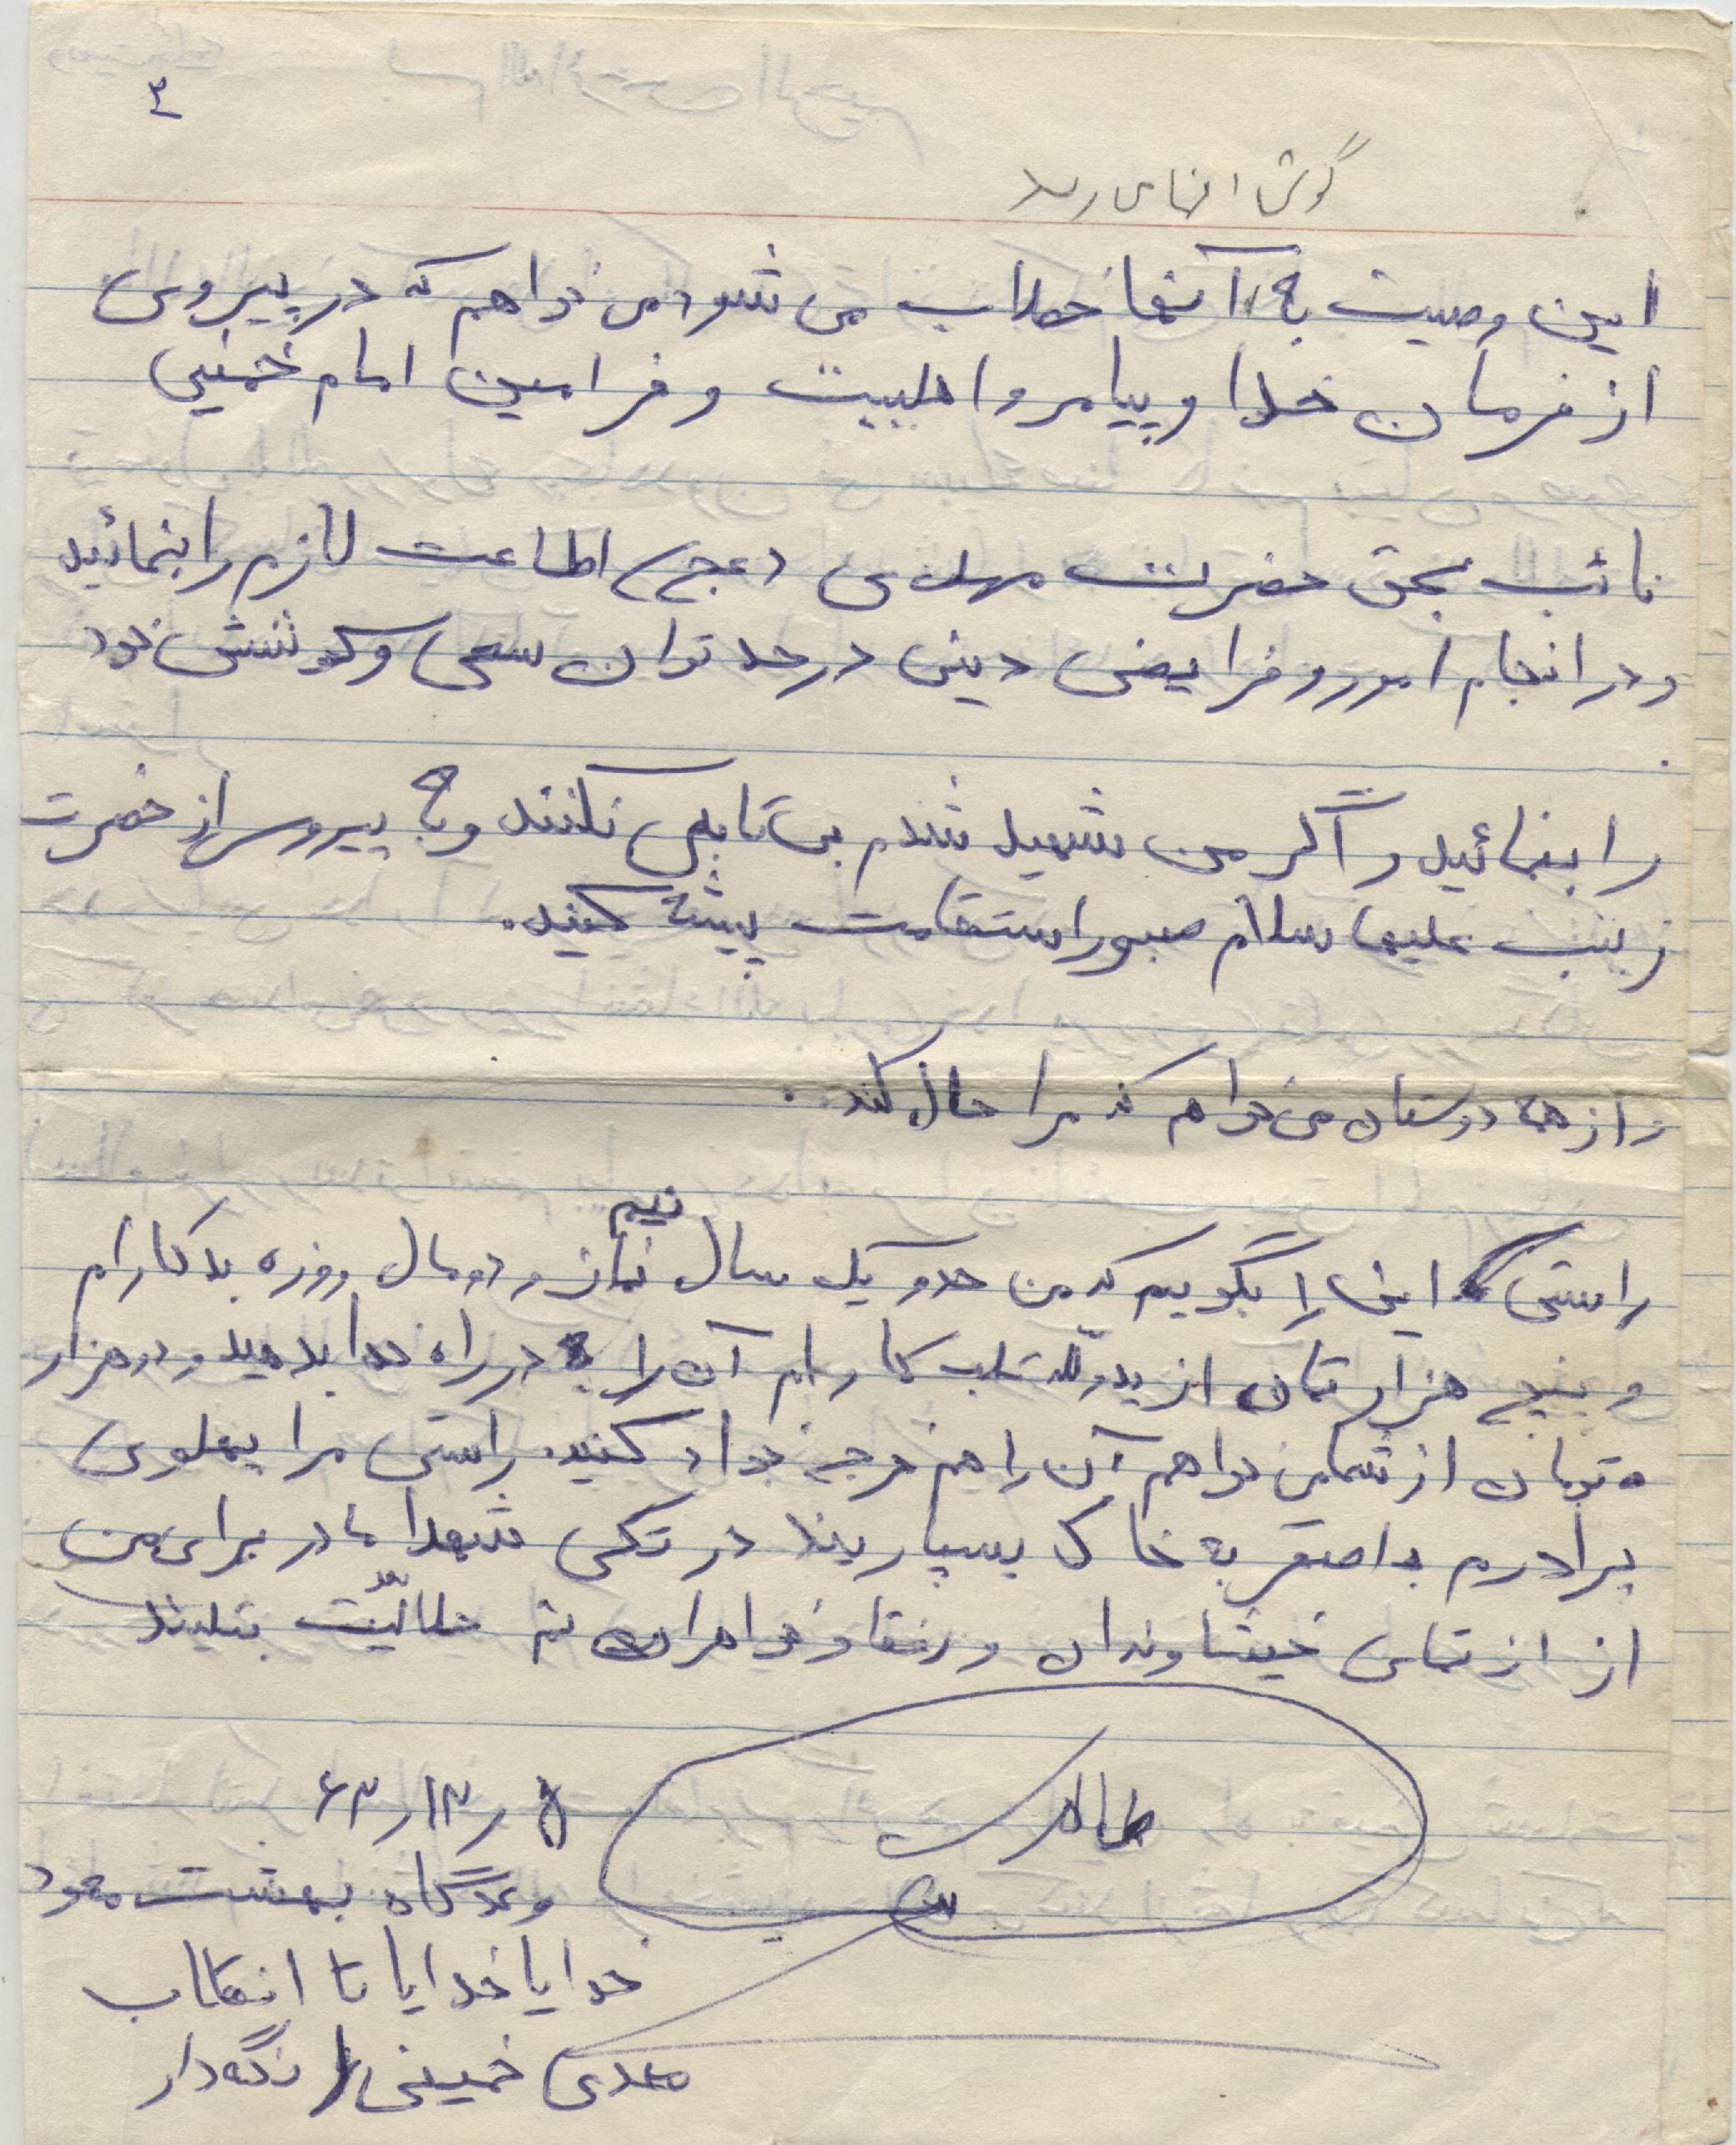 ۳
گوش آنها می رسد
این وصیت به آنها خطاب می شود می خواهم که در پیروی
از فرمان خدا و پیامبر و اهلبیت و فرامین امام خمینی
نائب بحق حضرت مهدی (عج) اطاعت لازم را بنمائید
و در انجام امور و فرایض دینی در حد توان سعی و کوشش خود
را بنمائید و اگر من شهید شدم بی تابی نکنند و با پیروی از حضرت
زینب علیها سلام صبر و استقامت پیشه کنید.
و از همه دوستان می خواهم که مرا حلال کند.
راستی اینرا بگویم که من حدود یک سال نیم نماز و دو سال روزه بدکارام
و پنج هزار تمان از بدو طلب کارام آن را در راه خدا بدهید و دو هزار
تومان از شما می خواهم آن را هم خرجی خود کنید. راستی مرا پهلوی
برادرم اصغر به خاک بسپارید در تکی شهدا مادر برای من
از از تمامی خیشاوندان و رفقا و خواهران حلالیّت بتلبند
طاهری
۸ر۱۲ر۶۳
وعدگاه بهشت معود
خدایا خدایا تا انقلاب
مهدی خمینی را نگه دار